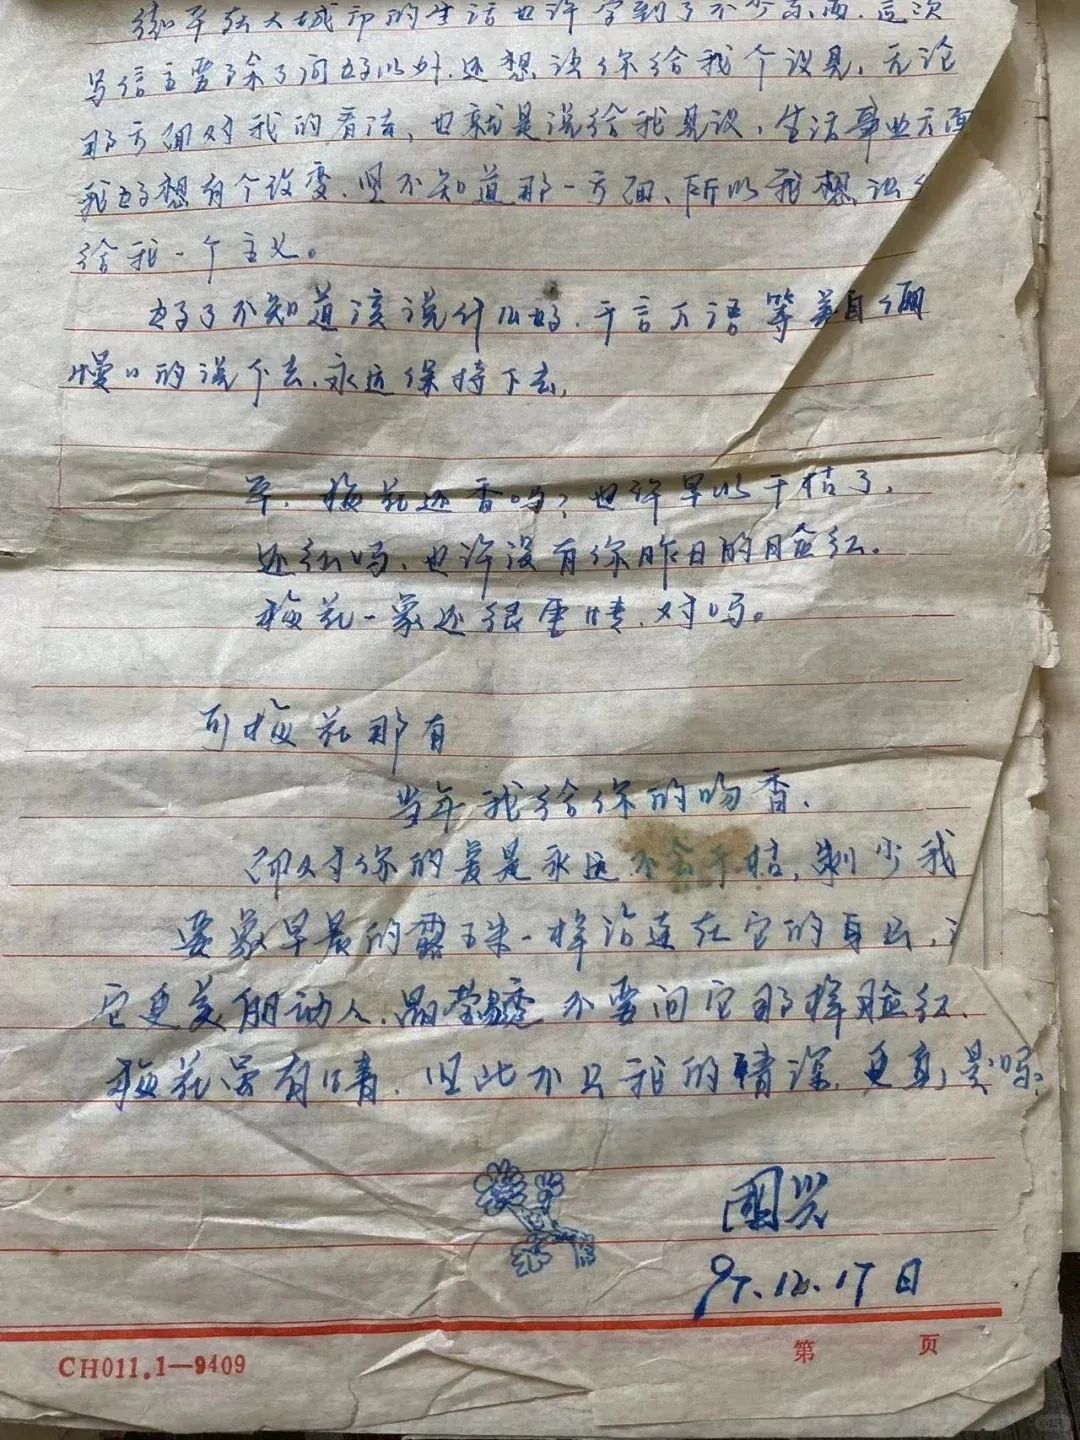 你平在大城市的生活也许学到了不少东西.这次
写信主要除了问好以外.还想让你给我个议见,无论
那方面对我的看法,也就是说给我见议,生活事业方面
我好想有个改变.但不知道那一方面、所以我想让
给我一个主义。
好了不知道该说什么好.千言万语等美自
慢慢的说下去.永远保持下去,
平.梅花还香吗?也许早以干枯了,
还红吗.也许没有你昨日的脸红。
梅花一象还很重情.对吗。
可梅花那有
当年我给你的吻香.
即对你的爱是永远不会干枯,剩少我
要象早晨的露珠一样沾连在它的身上,
它更美丽动人.晶莹透 不要问它那样脸红.
梅花虽有情.但此不只我的情深,更真,是吗
国兴
97.12.17日
CH011.1—9409
第 页